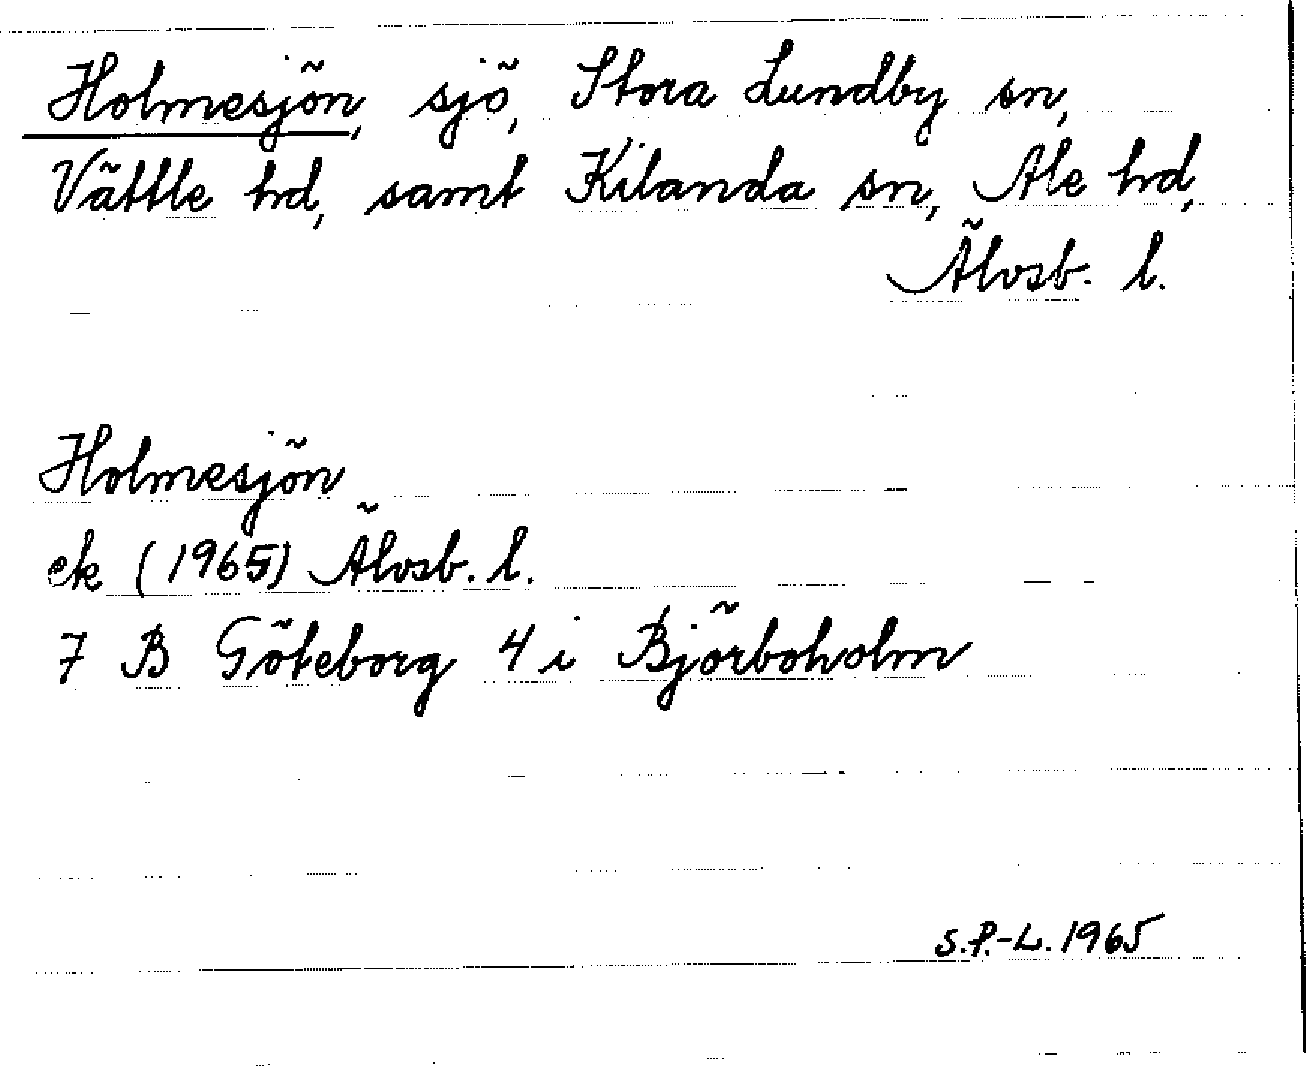 Holmesjön, sjö, Stora Lundby sn,
Vättle hd, samt Kilanda sn, Ale hd,
Älvsb. l.
Holmesjön
ek (1965) Älvsb. l.
7 B Göteborg 4 i Björboholm
S.P.-L. 1965